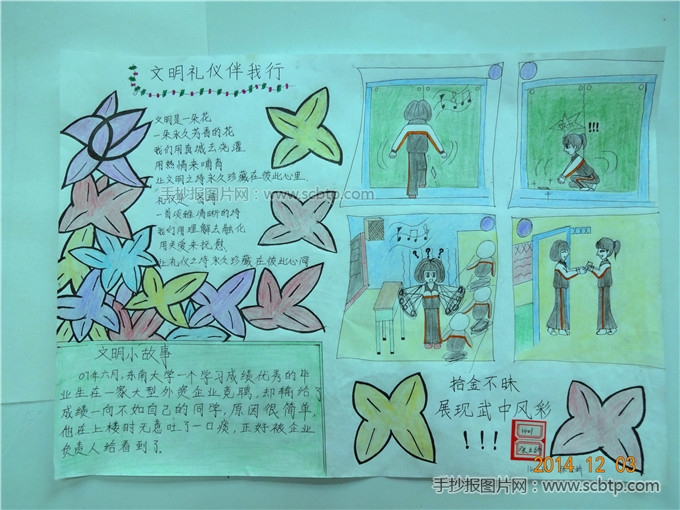 文明礼仪伴我行
文明是一朵花
一朵永久芳香的花
我们用真诚去浇灌
用热情来哺育
让文明之诗永久珍藏在彼此心里
礼仪是一首诗
一首淡雅清晰的诗
我们用理解去融化
用关爱来抚慰
让礼仪之诗永久珍藏在彼此心间
文明小故事
07年六月,东南大学一个学习成绩优秀的毕
业生在一家大型外资企业竞聘,却输给了
成绩一向不如自己的同学,原因很简单,
他在上楼时无意吐了一口痰,正好被企业
负责人给看到了.
!!!
???
拾金不昧
展现武中风彩
!!!
2014.12.03
手抄报图片网:www.scbtp.com
手抄报图片网:www.scbtp.com